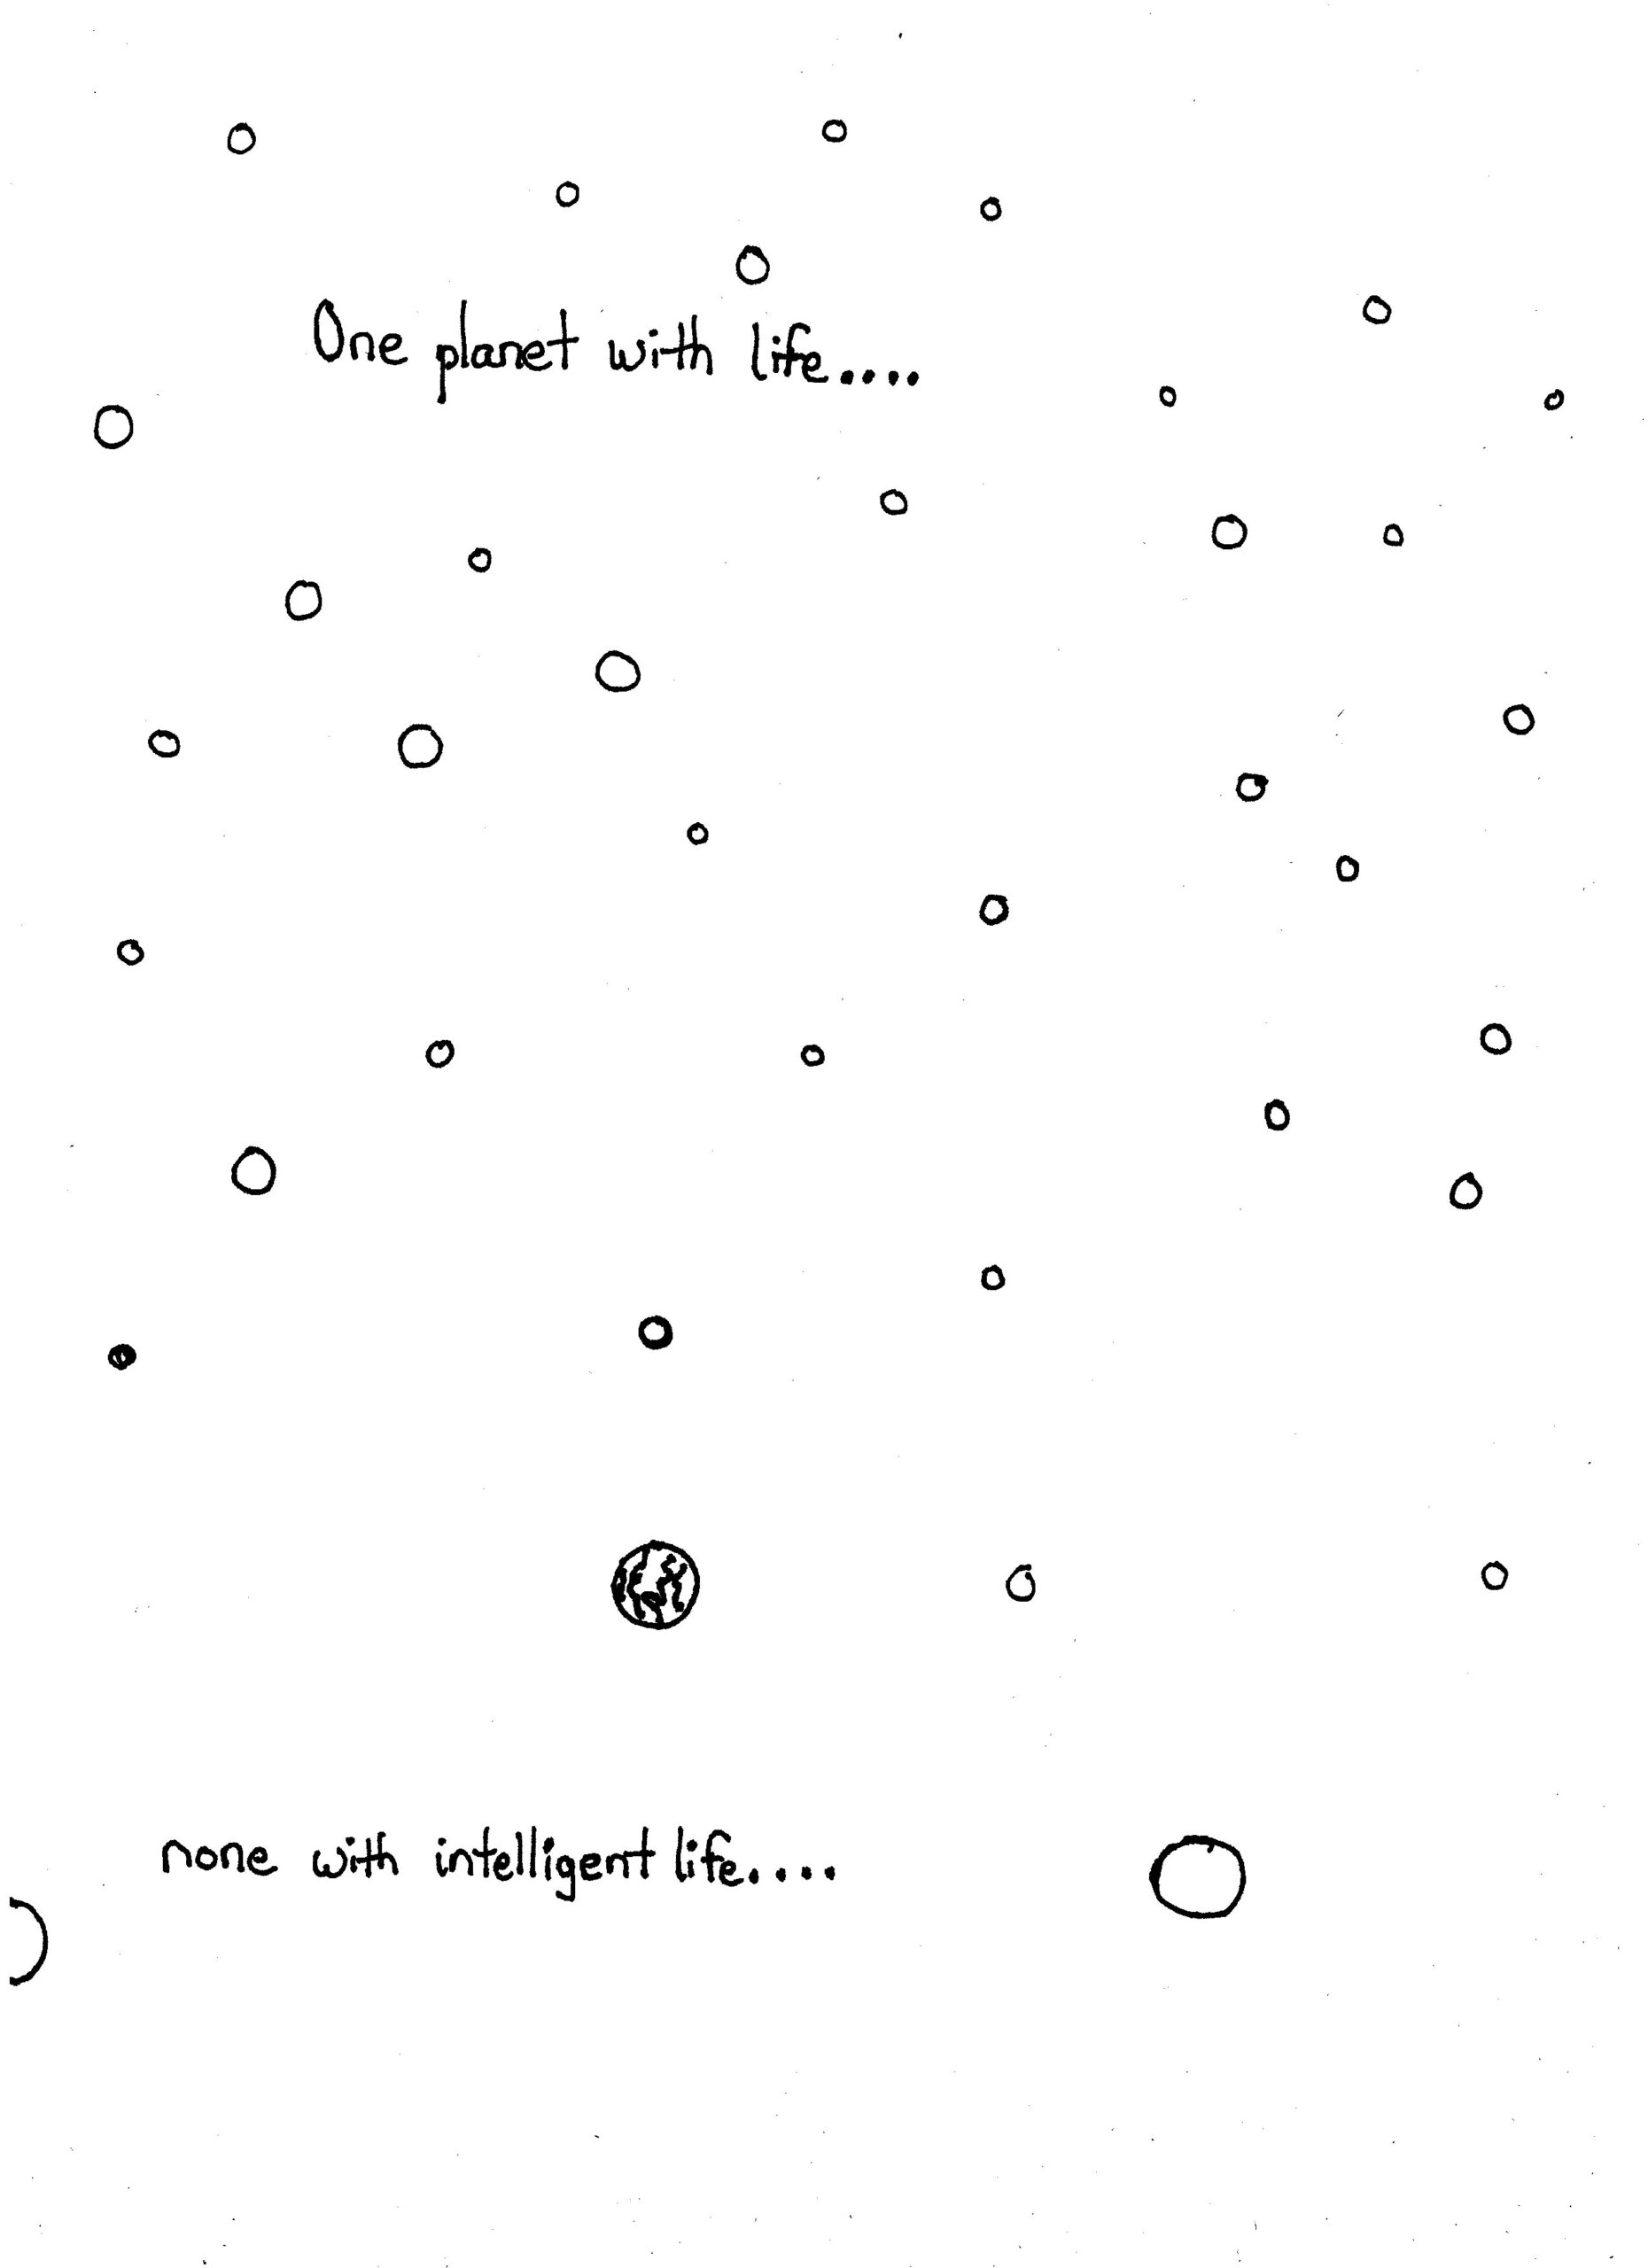 One planet with life....
none with intelligent life....